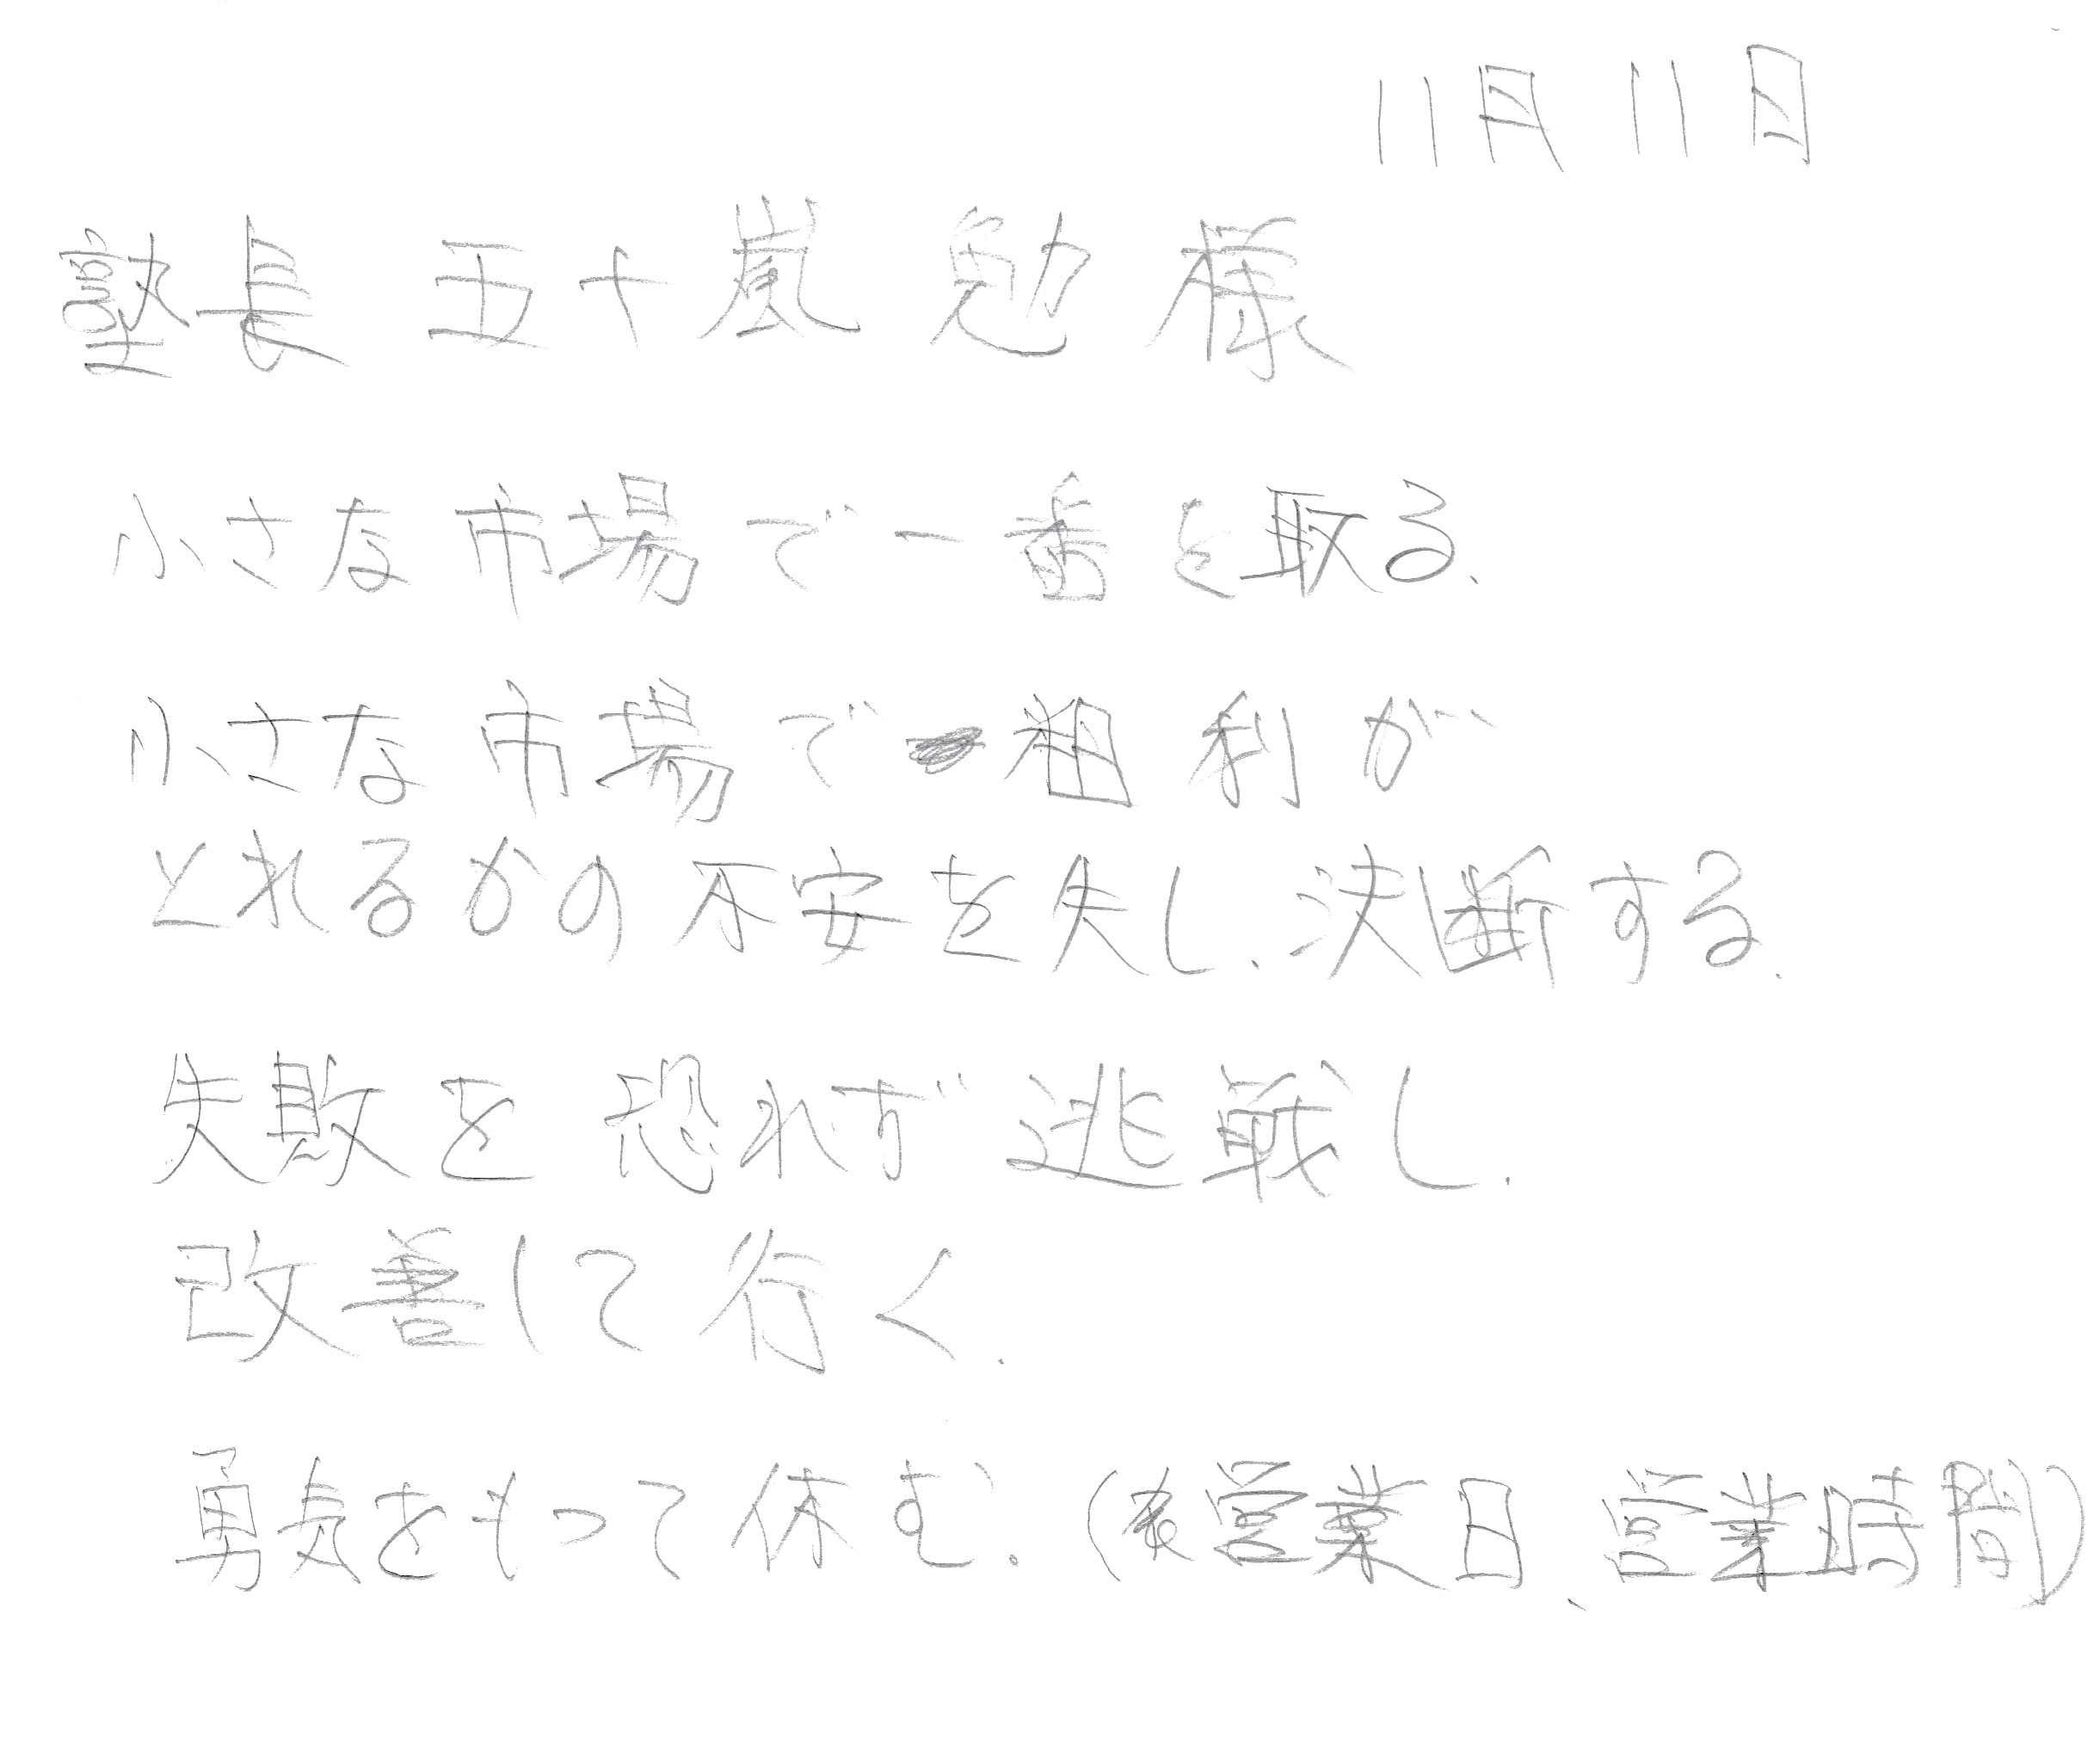 11月11日
塾長 五十嵐 勉 様
小さな市場で一番を取る.
小さな市場で粗利が
とれるかの不安を失し、決断する.
失敗を恐れず逃戦し.
改善して行く.
勇気をもって休む.(営業日、営業時間)